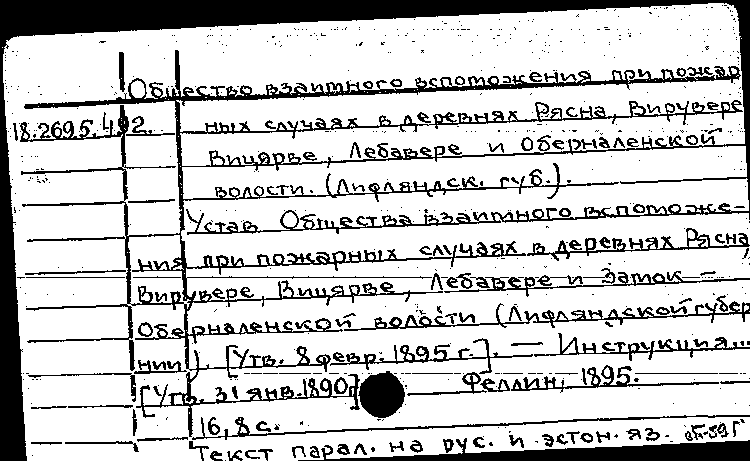 Общество взаимного вспоможения при пожар
18.2695.492. ных случаях в деревнях Рясна, Вирувере
Вицярве, Лебавере и Оберпаленской
волости. (Лифляндск. губ.).
Устав Общества взаимного вспоможе-
ния при пожарных случаях в деревнях Рясна,
Вирувере, Вицярве, Лебавере и Замок –
Оберпаленской волости (Лифляндской губер
нии). [Утв. 8 февр. 1895 г.]. — Инструкция...
[Утв. 31 янв. 1890] Феллин, 1895.
16, 8 с.
Текст парал. на рус. и эстон. яз.